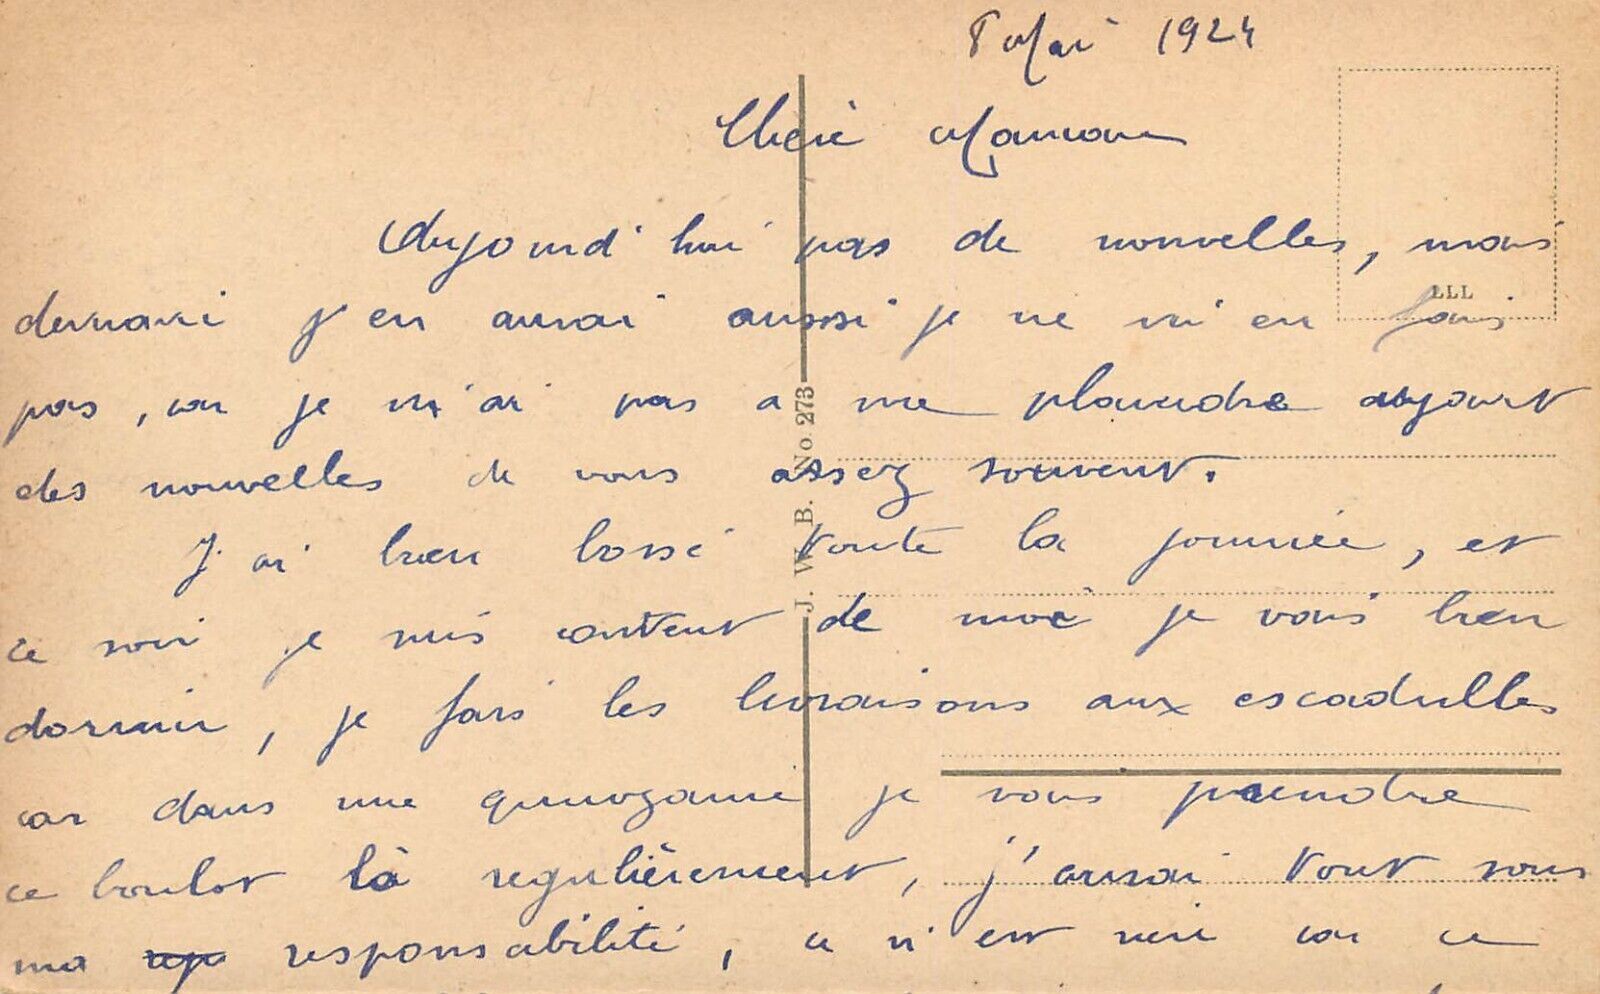 8 Mai 1924
Chère Maman
Aujourd'hui pas de nouvelles, mais
LLL
demain j'en aurai aussi je ne m'en fais
pas, car je n'ai pas a me plaindre ayant
des nouvelles de vous assez souvent.
J'ai bien bossé toute la journée, et
ce soir je suis content de moi je vais bien
dormir, je fais les livraisons aux escadrilles
car dans une quinzaine je vais prendre
ce boulot là regulièrement, j'aurai tout sous
ma responsabilité, ce n'est rien car ce
J. W. B. No. 273